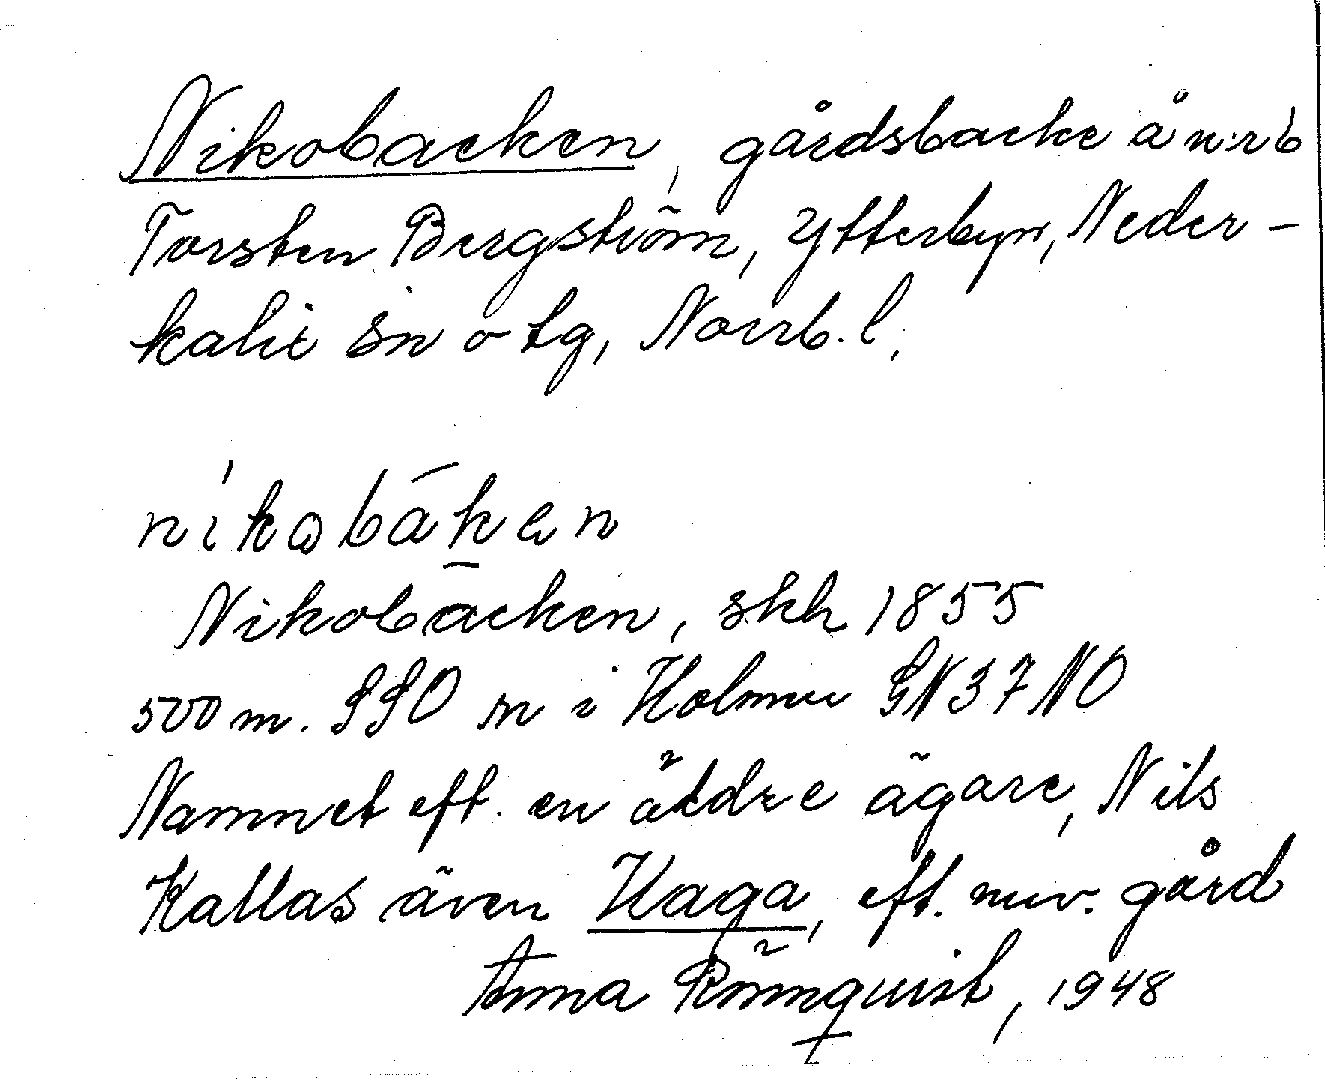 Nikobacken, gårdsbacke å nrb
Torsten Bergström, Ytterbyn, Neder-
kalix sn o tg, Norrb. l.
nikobáken
Nikobäcken, skh 1855
500 m. SSO m i Holmen GN37NO
Namnet eft. en äldre ägare, Nils
Kallas även Haga, eft. nuv. gård
Anna Rönnquist, 1948